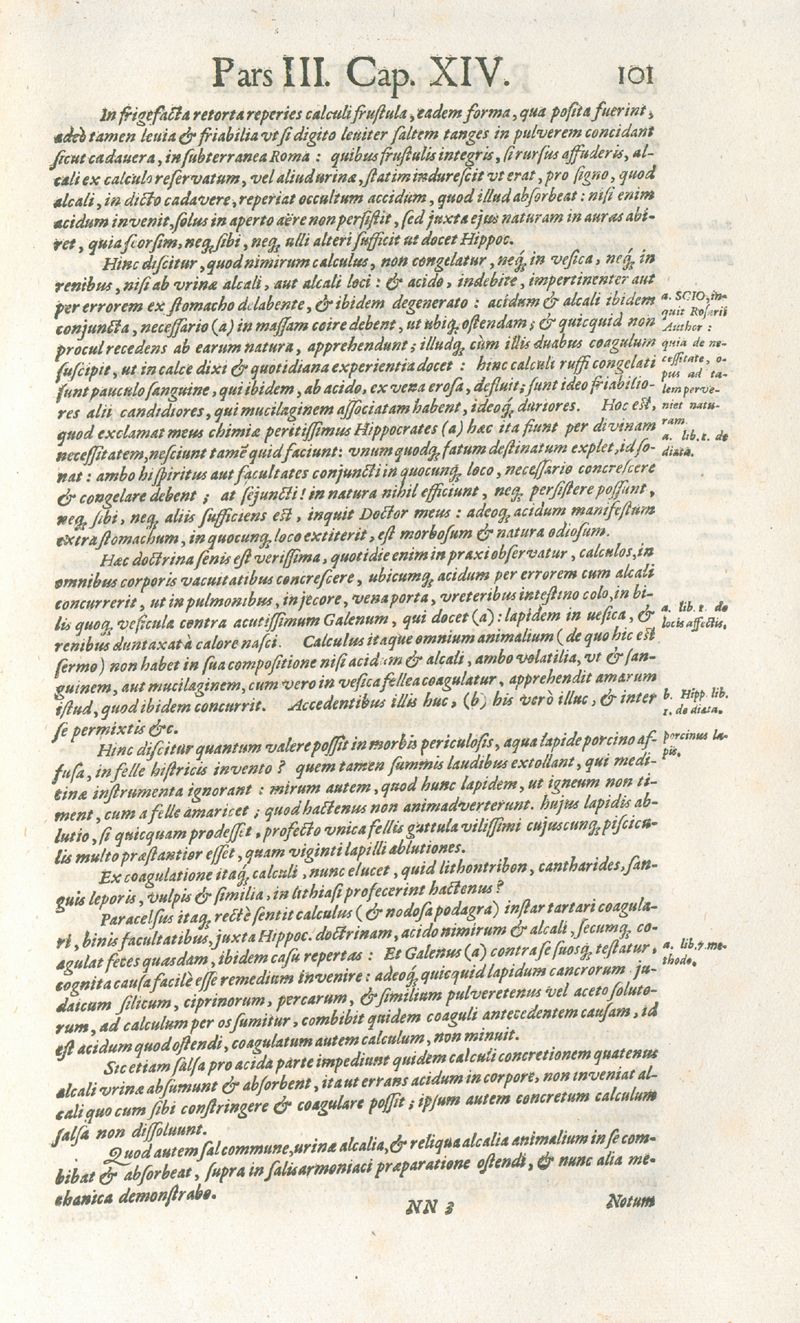 Pars III. Cap. XIV. 101
In frigefacta retorta reperies calculi fruſtula, eadem forma, qua poſita fuerint,
adeò tamen leuia & friabilia vt ſi digito leuiter ſaltem tanges in pulverem concidant
ſicut cadauera, in ſubterranea Roma : quibus fruſtulis integris, ſi rurſus affuderis, al-
cali ex calculo reſervatum, vel aliud urinæ, ſtatim indureſcit vt erat, pro ſigno, quod
alcali, in dicto cadavere, reperiat occultum accidum, quod illud abſorbeat : niſi enim
acidum invenit, ſolus in aperto aëre non perſiſtit, ſed juxta ejus naturam in auras abi-
ret, quia ſcorſim, neq; ſibi, neq; ulli alteri ſufficit ut docet Hippoc.
Hinc diſcitur, quod nimirum calculus, non congelatur, neq; in veſica, neq; in
renibus, niſi ab vrinæ alcali, aut alcali loci : & acido, indebite, impertinenter aut
per errorem ex ſtomacho delabente, & ibidem degenerato : acidum & alcali ibidem
conjuncta, neceſſario (a) in maſſam coire debent, ut ubiq; oſtendam ; & quicquid non
procul recedens ab earum natura, apprehendunt ; illudq; cùm illis duabus coagulum
ſuſcipit, ut in calce dixi & quotidiana experientia docet : hinc calculi ruffi congelati
ſunt pauculo ſanguine, qui ibidem, ab acido, ex vena eroſa, defluit ; ſunt ideo friabilio-
res alii candidiores, qui mucilaginem aſſociatam habent, ideoq; duriores. Hoc eſt,
quod exclamat meus chimiæ peritiſſimus Hippocrates (a) hæc ita fiunt per divinam
neceſſitatem, neſciunt tamē quid faciunt : vnumquodq; fatum deſtinatum explet, id ſo-
nat : ambo hi ſpiritus aut facultates conjuncti in quocunq; loco, neceſſario concreſcere
& congelare debent ; at ſejuncti ! in natura nihil efficiunt, neq; perſiſtere poſſunt,
neq; ſibi, neq; aliis ſufficiens eſt, inquit Doctor meus : adeoq; acidum manifeſtum
extra ſtomachum, in quocunq; loco extiterit, eſt morboſum & natura odioſum.
Hæc doctrina ſenis eſt veriſſima, quotidie enim in praxi obſervatur, calculos, in
omnibus corporis vacuitatibus concreſcere, ubicumq; acidum per errorem cum alcali
concurrerit, ut in pulmonibus, in jecore, vena porta, vreteribus inteſtino colo, in bi-
lis quoq; veſicula contra acutiſſimum Galenum, qui docet (a) : lapidem in ueſica, &
renibus duntaxat à calore naſci. Calculus itaque omnium animalium (de quo hic eſt
ſermo) non habet in ſua compoſitione niſi acidum & alcali, ambo volatilia, vt & ſan-
guinem, aut mucilaginem, cum vero in veſica fellea coagulatur, apprehendit amarum
iſtud, quod ibidem concurrit. Accedentibus illis huc, (b) his verò illuc, & inter
ſe permixtis &c.
Hinc diſcitur quantum valere poſſit in morbis periculoſis, aqua lapide porcino af-
fuſa, in felle hiſtricis invento ? quem tamen ſummis laudibus extollant, qui medi-
cinæ inſtrumenta ignorant : mirum autem, quod hunc lapidem, ut igneum non ti-
ment, cum a felle amaricet ; quod hactenus non animadverterunt. hujus lapidis ab-
lutio, ſi quicquam prodeſſet, profecto vnica fellis guttula viliſſimi cujuscunq; piſcicu-
lis multo præſtantior eſſet, quam viginti lapilli ablutiones.
Ex coagulatione itaq; calculi, nunc elucet, quid lithontribon, cantharides, ſan-
guis leporis, vulpis & ſimilia, in lithiaſi profecerint hactenus ?
Paracelſus itaq; rectè ſentit calculus (& nodoſa podagra) inſtar tartari coagula-
ri, binis facultatibus, juxta Hippoc. doctrinam, acido nimirum & alcali, ſecumq; co-
agulat feces quasdam, ibidem caſu repertas : Et Galenus (a) contra ſe ſuosq; teſtatur,
cognita cauſa facilè eſſe remedium invenire : adeoq; quicquid lapidum cancrorum ju-
daicum ſilicum, ciprinorum, percarum, & ſimilium pulveretenus vel aceto ſoluto-
rum, ad calculum per os ſumitur, combibit quidem coaguli antecedentem cauſam, id
eſt acidum quod oſtendi, coagulatum autem calculum, non minuit.
Sic etiam ſalſa pro acida parte impediunt quidem calculi concretionem quatenus
alcali vrinæ abſumunt & abſorbent, ita ut errans acidum in corpore, non inveniat al-
cali quo cum ſibi conſtringere & coagulare poſſit ; ipſum autem concretum calculum
ſalſa non diſſoluunt.
Quod autem ſal commune, urinæ alcalia, & reliqua alcalia animalium in ſe com-
bibat & abſorbeat, ſupra in ſalis armoniaci præparatione oſtendi, & nunc alia me-
chanica demonſtrabo.
NN 3 Notum
a. SCIO, in-
quit Roſarii
Author :
quia de ne-
ceſſitate, o-
pus ad ta-
lem perve-
niet natu-
ram
a. lib. 1. de
diæta.
a. lib. 1. de
locis affectis.
b. Hipp. lib.
1. de diæta.
porcinus la-
pis.
a. lib. 7. me-
thode.